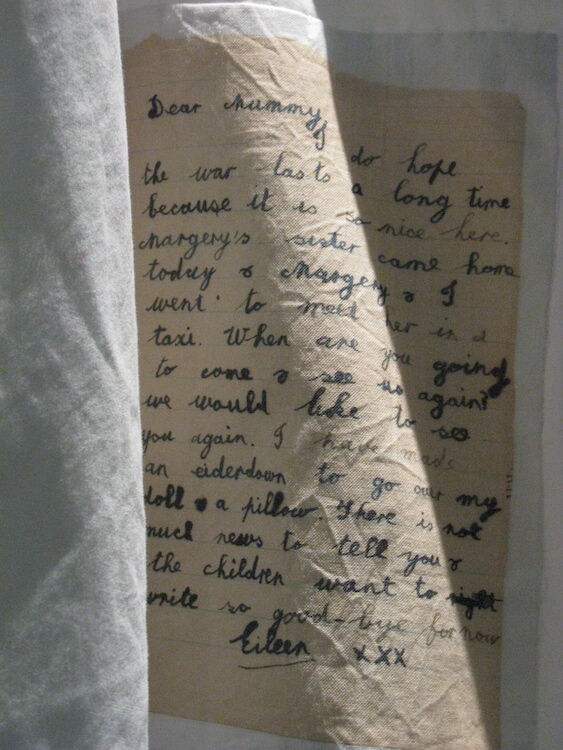 Dear Mummy,
I do hope
the war lasts a long time
because it is so nice here.
Margery's sister came home
today & Margery & I
went to meet her in a
taxi. When are you going
to come & see us again?
we would like to see
you again. I have made
an eiderdown to go our my
doll & a pillow. There is not
much news to tell you &
the children want to right
write so good-bye for now
Eileen xxx